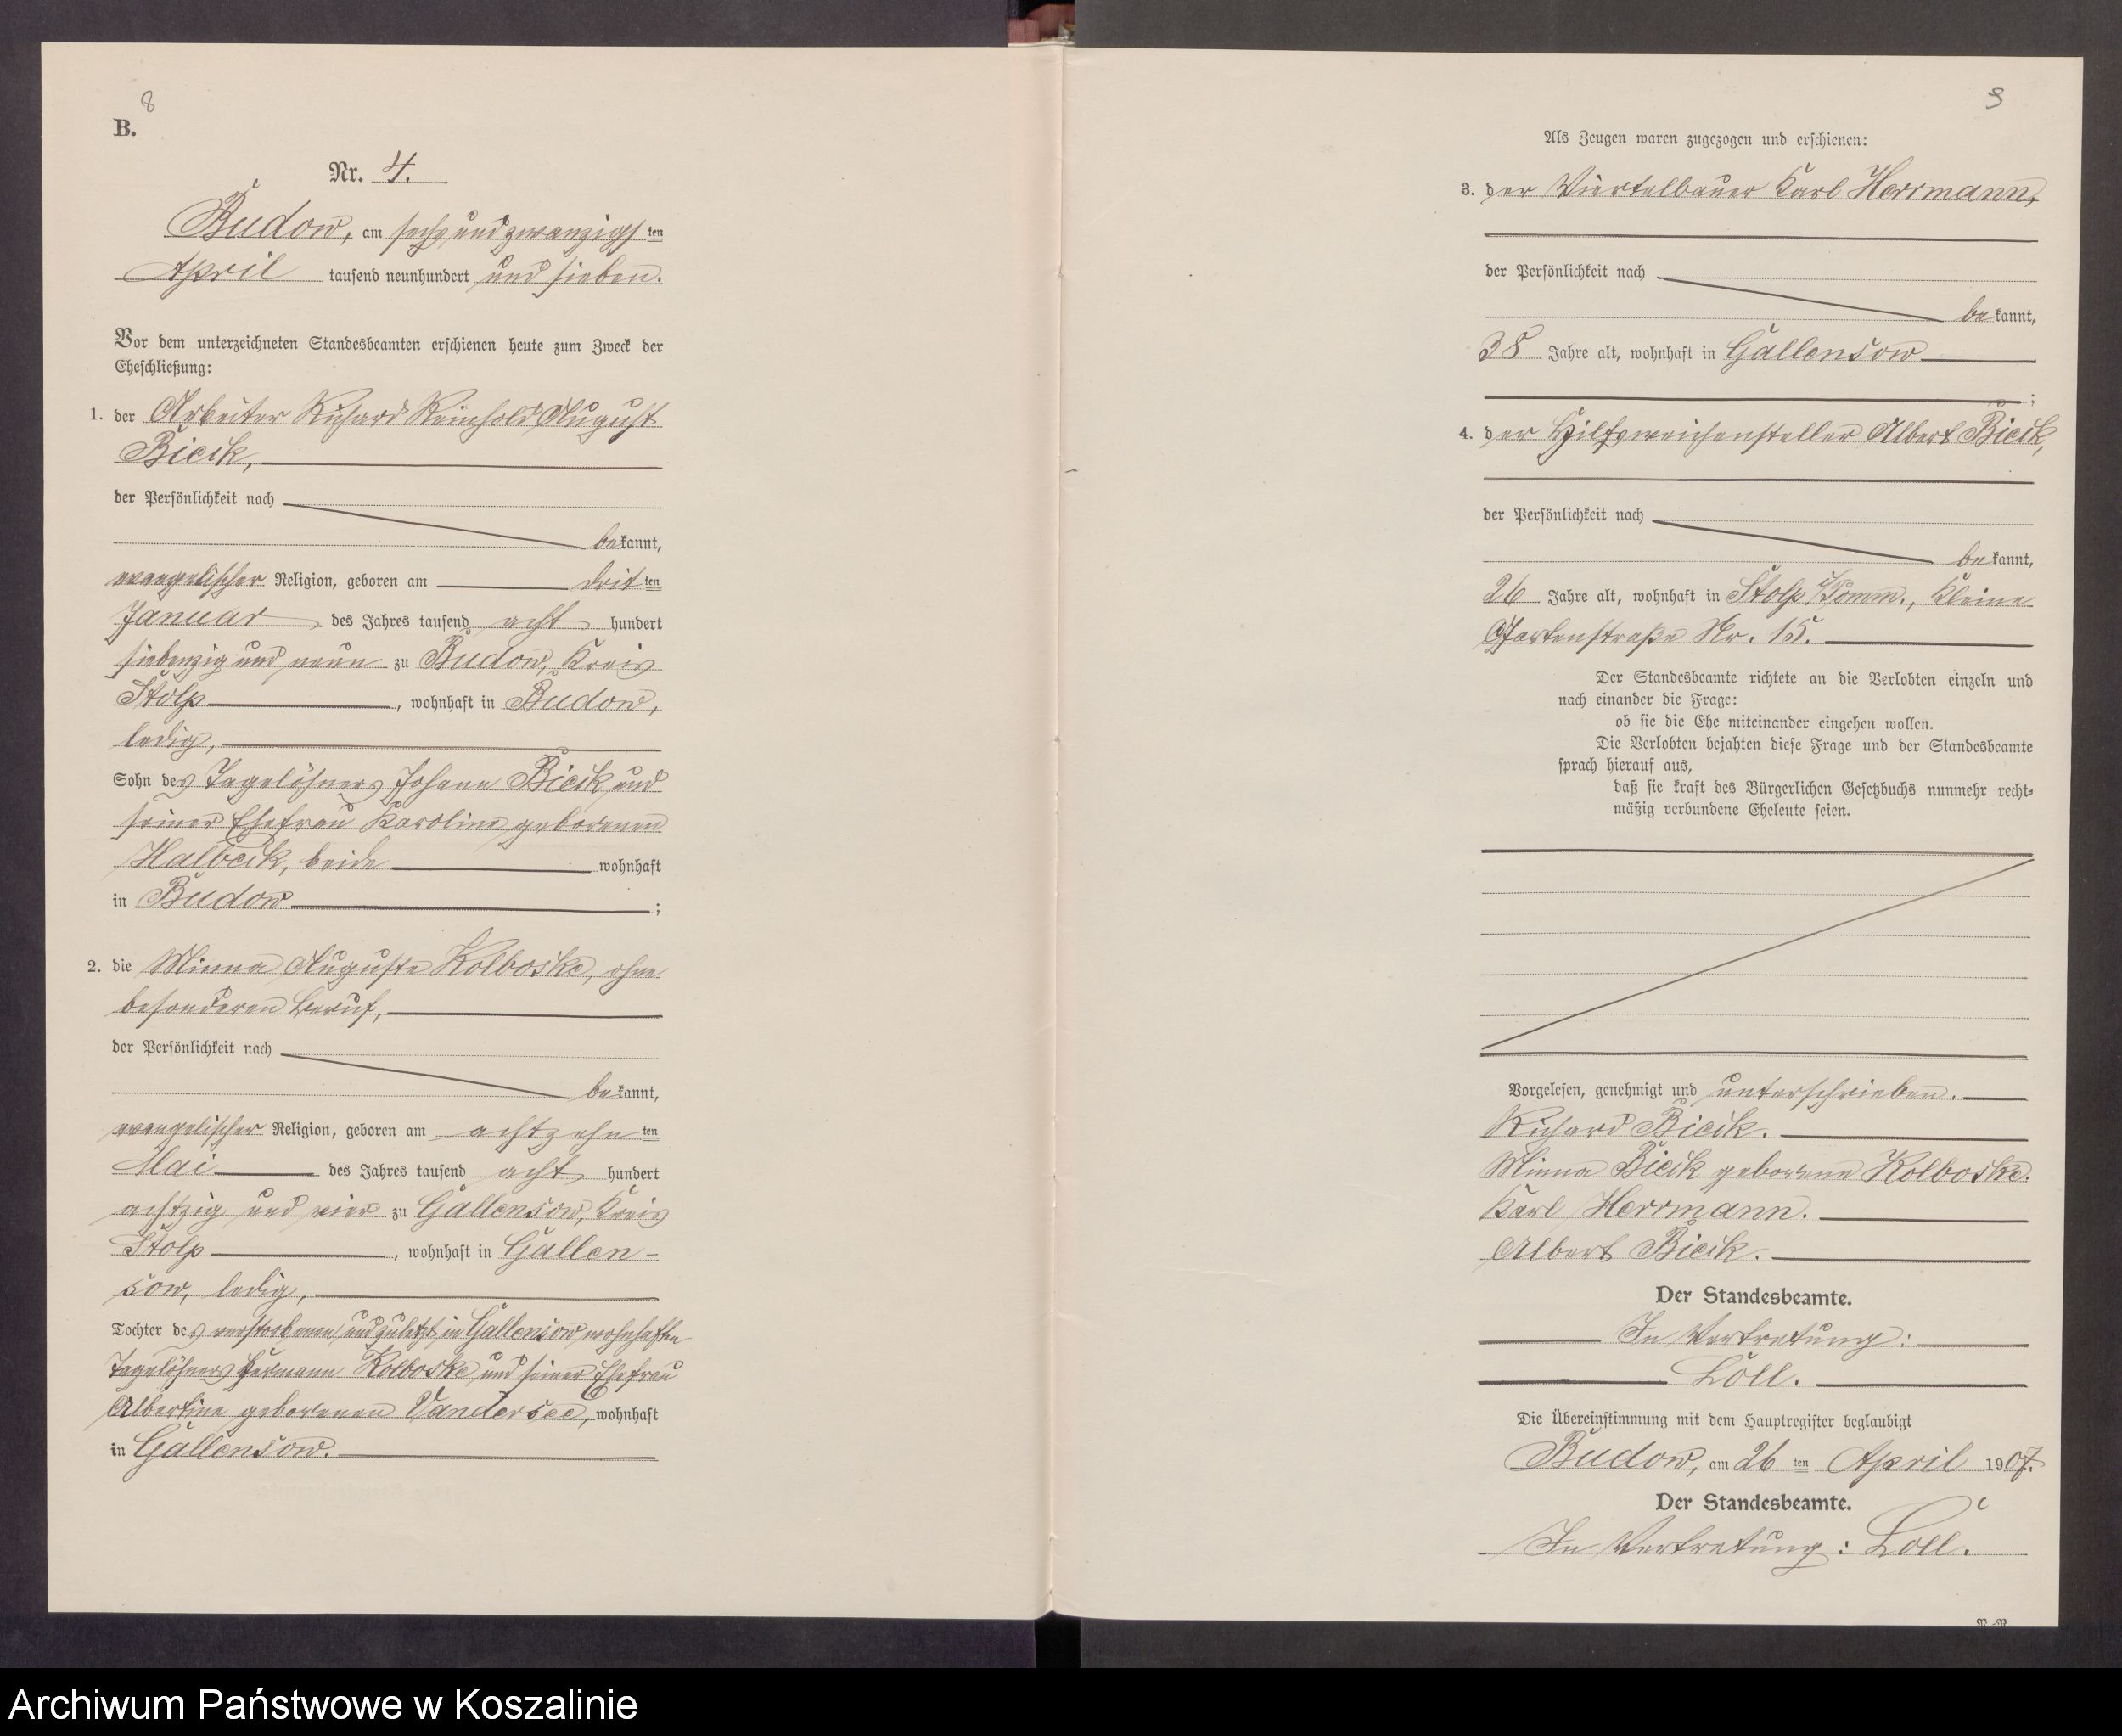 8
B.
Nr. 4.
Budow, am sechsundzwanzigsten
April tausend neunhundert und sieben.
Vor dem unterzeichneten Standesbeamten erschienen heute zum Zweck der
Eheschließung:
1. der Arbeiter Richard Reinhold August
Bicik,
der Persönlichkeit nach
bekannt,
evangelischer Religion, geboren am dritten
Januar des Jahres tausend acht hundert
siebenzig und neun zu Budow, Kreis
Stolp, wohnhaft in Budow,
ledig,
Sohn des Tagelöhners Johann Bicik und
seiner Ehefrau Karoline geborenen
Halbeck, beide wohnhaft
in Budow;
2. die Minna Auguste Kolboske, ohne
besonderen Beruf,
der Persönlichkeit nach
bekannt,
evangelischer Religion, geboren am achtzehnten
Mai des Jahres tausend acht hundert
achtzig und vier zu Gallensow, Kreis
Stolp, wohnhaft in Gallen-
sow, ledig,
Tochter des verstorbenen und zuletzt in Gallensow wohnhaften
Tagelöhners Hermann Kolboske und seiner Ehefrau
Albertine geborenen Vandersee, wohnhaft
in Gallensow.
Als Zeugen waren zugezogen und erschienen:
3. der Viertelbauer Karl Herrmann,
der Persönlichkeit nach
bekannt,
38 Jahre alt, wohnhaft in Gallensow
;
4. der Hilfsweichensteller Albert Bicik,
der Persönlichkeit nach
bekannt,
26 Jahre alt, wohnhaft in Stolp i/Pomm., Kleine
Gartenstraße Nr. 15.
Der Standesbeamte richtete an die Verlobten einzeln und
nach einander die Frage:
ob sie die Ehe miteinander eingehen wollen.
Die Verlobten bejahten diese Frage und der Standesbeamte
sprach hierauf aus,
daß sie kraft des Bürgerlichen Gesetzbuchs nunmehr recht-
mäßig verbundene Eheleute seien.
Vorgelesen, genehmigt und unterschrieben.
Richard Bicik.
Minna Bicik geborene Kolboske.
Karl Herrmann.
Albert Bicik.
Der Standesbeamte.
In Vertretung:
Loll.
Die Übereinstimmung mit dem Hauptregister beglaubigt
Budow, am 26 ten April 1907.
Der Standesbeamte.
In Vertretung: Loll.
Archiwum Państwowe w Koszalinie